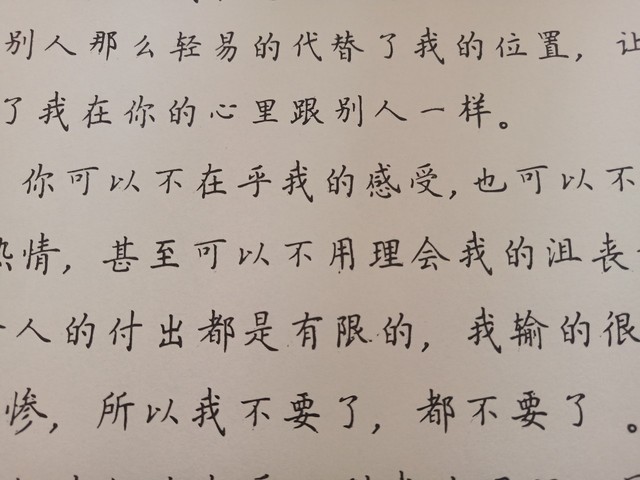 别人那么轻易的代替了我的位置，让
了我在你的心里跟别人一样。
你可以不在乎我的感受，也可以不
热情，甚至可以不用理会我的沮丧
人的付出都是有限的，我输的很
惨，所以我不要了，都不要了。